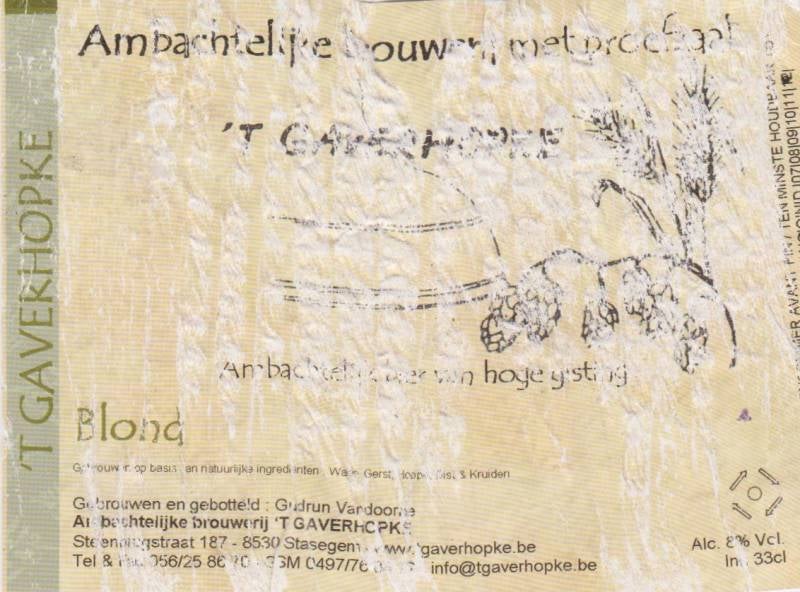 Ambachtelijke brouwerij met proefzaal
'T GAVERHOPKE
'T GAVERHOPKE
Ambachtelijk bier van hoge gisting
Blond
Gebrouwen op basis van natuurlijke ingrediënten : Water, Gerst, Hoppe, Gist & Kruiden
Gebrouwen en gebotteld : Gudrun Vandoorne
Ambachtelijke brouwerij 'T GAVERHOPKE
Steenbrugstraat 187 - 8530 Stasegem - www.tgaverhopke.be
Tel & Fax 056/25 86 70 - GSM 0497/76 info@tgaverhopke.be
Alc. 8% Vol.
Inh. 33cl
AVANT FIN / TEN MINSTE HOUDBAAR TOT
07|08|09|10|11|12|